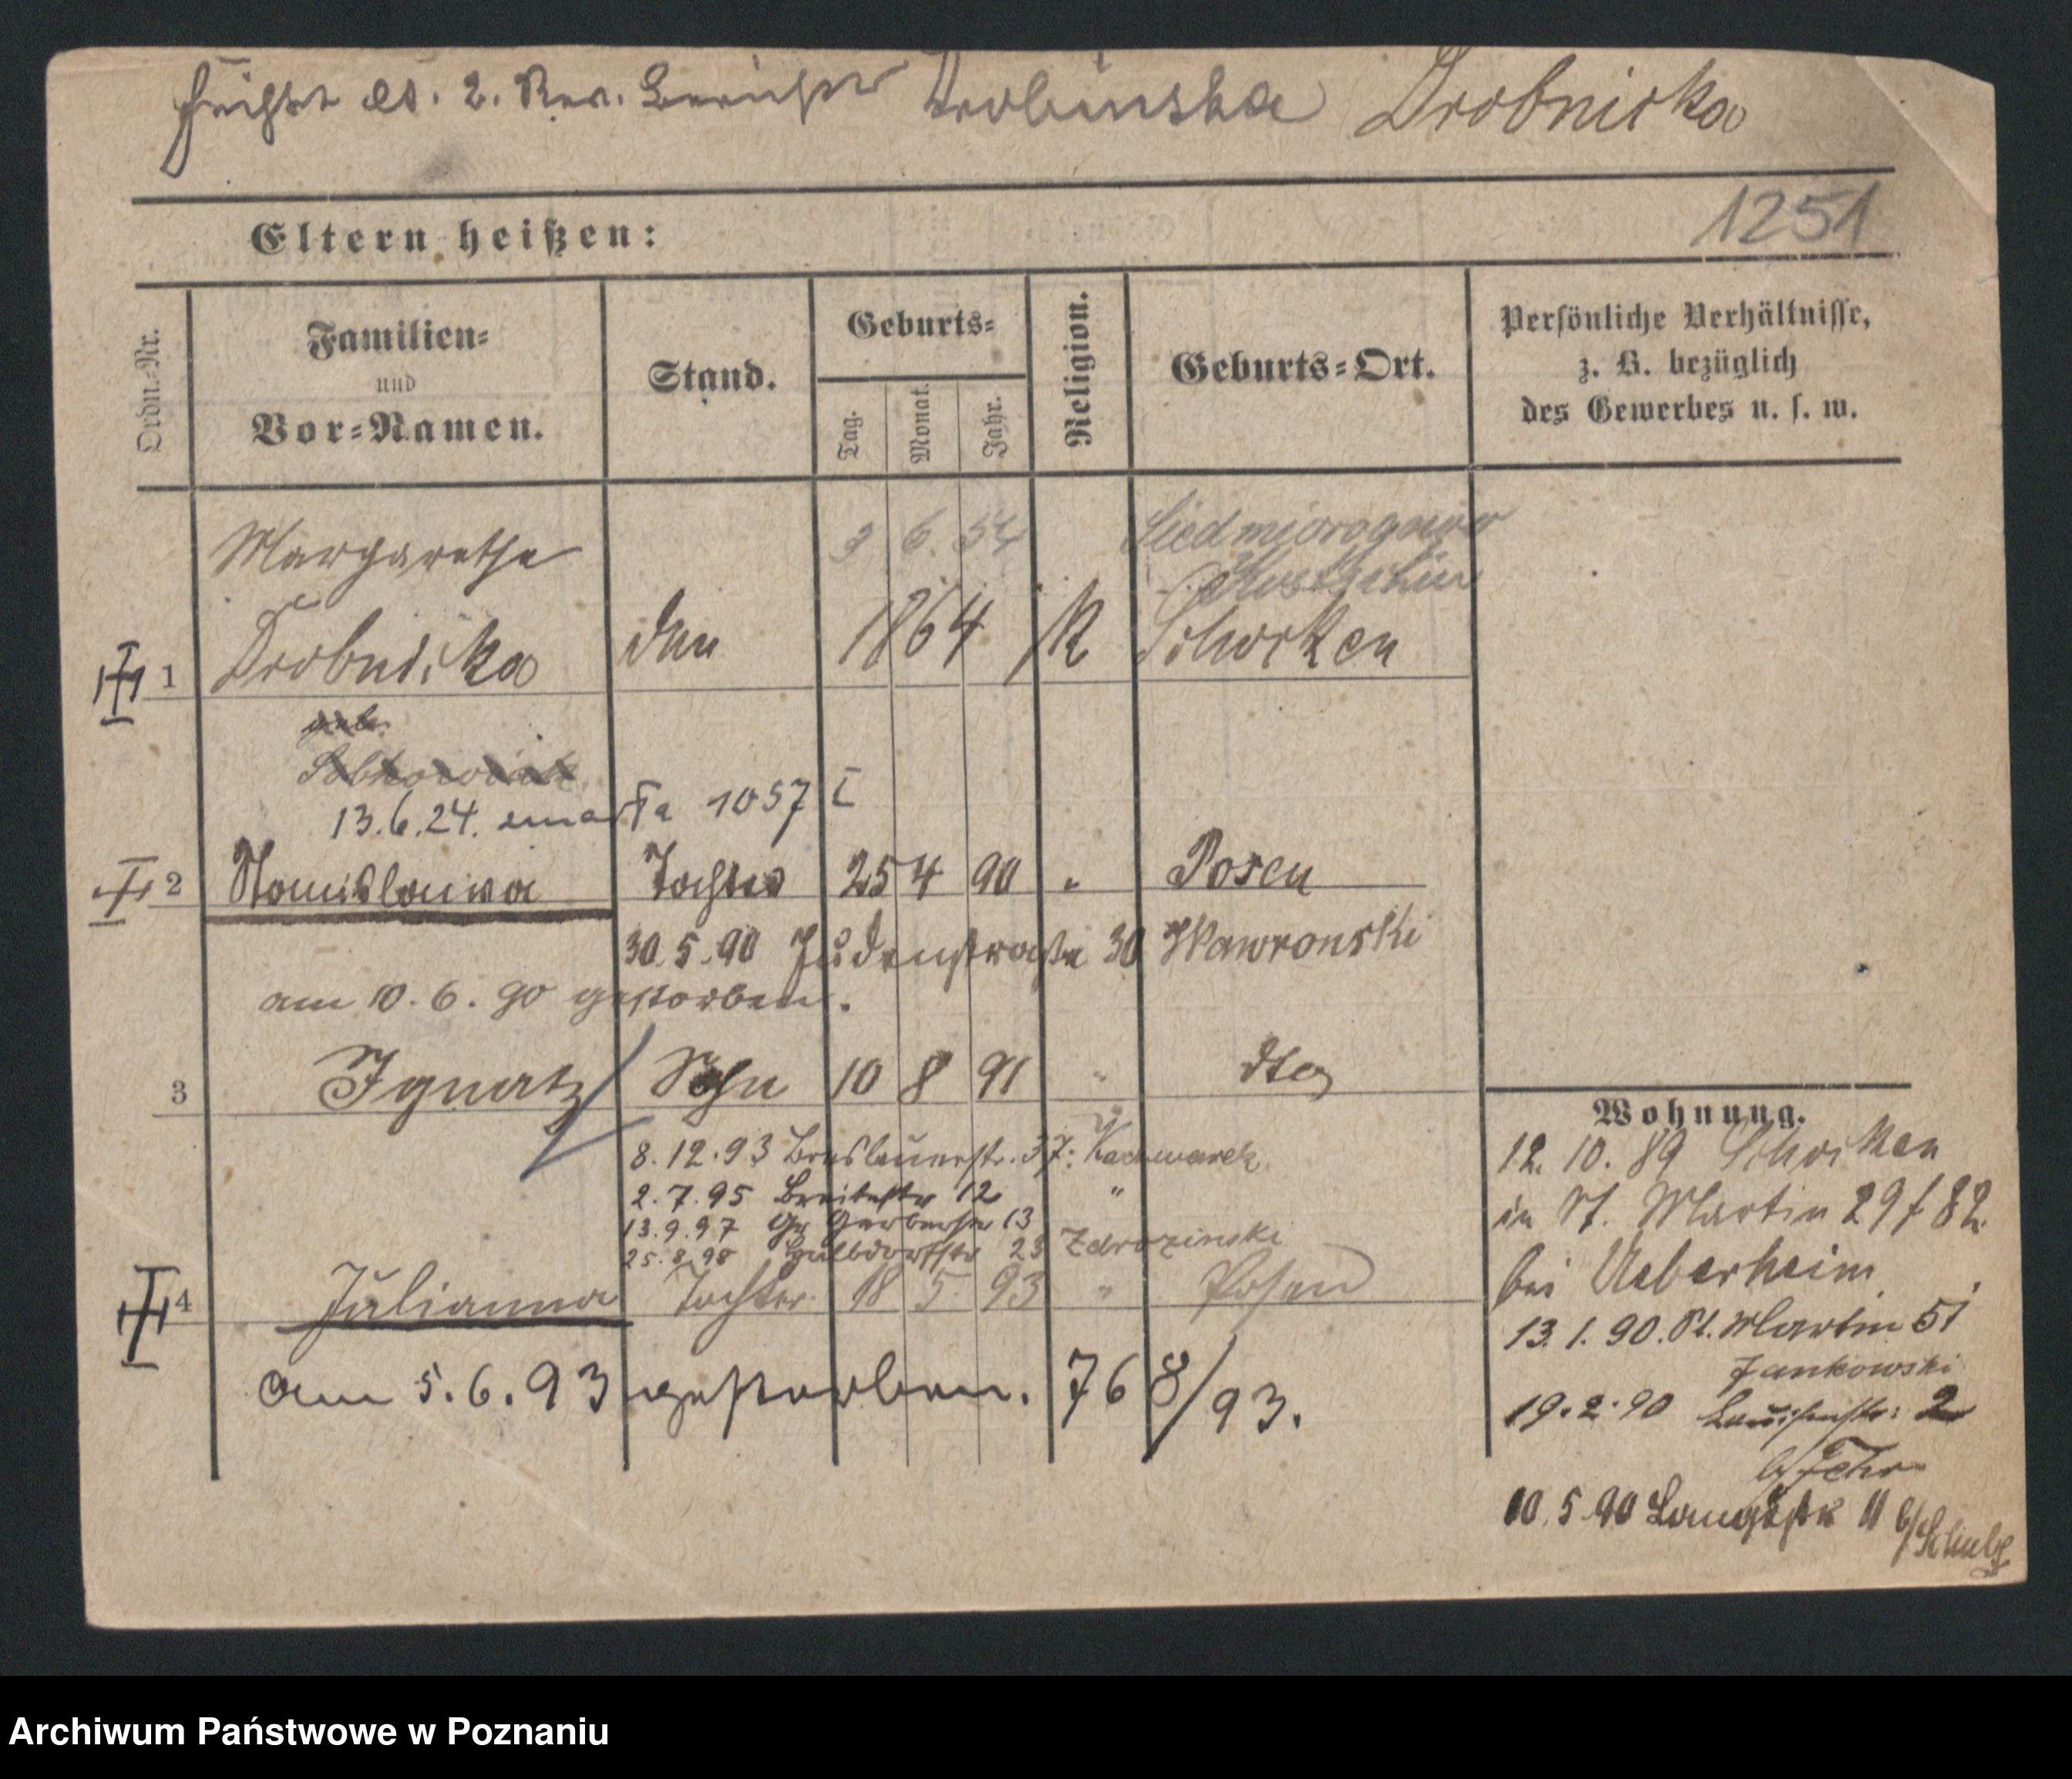 heißt lt. 2. Rev. Drobinska Drobnicka
1251
Eltern heißen:
Ordn.-Nr.
Familien-
und
Vor-Namen.
Stand.
Geburts-
Tag.
Monat.
Jahr.
Religion.
Geburts-Ort.
Persönliche Verhältnisse,
z. B. bezüglich
des Gewerbes u. s. w.
Margarethe 3 6 54 Siedmiorogowo
Kostschin
1 Drobnicka 1864 K Schocken
geb.
13.6.24. zmarła 1057 I
2 Stanislawa Tochter 25 4 90 " Posen
30.5.90 Judenstraße 30 Wawronski
am 10.6.90 gestorben.
3 Ignatz Sohn 10 8 91 " dto
8.12.93 Breslauerstr. 37. Kaczmarek
2.7.95 Breitestr 12 "
13.9.97 Gr Gerberstr 13
25.8.98 Halbdorfstr 23 Zdrozinski
4 Julianna Tochter 18 5. 93 " Posen
am 5.6.93 gestorben. 768/93.
Wohnung.
12.10.89 Schocken
in St. Martin 29 f 82.
bei Ueberheim
13.1.90. St. Martin 51
Jankowski
19.2.90 Louisenstr: 2
b/ Fehr
10.5.90 Langestr 11 b/ Schulz
Archiwum Państwowe w Poznaniu